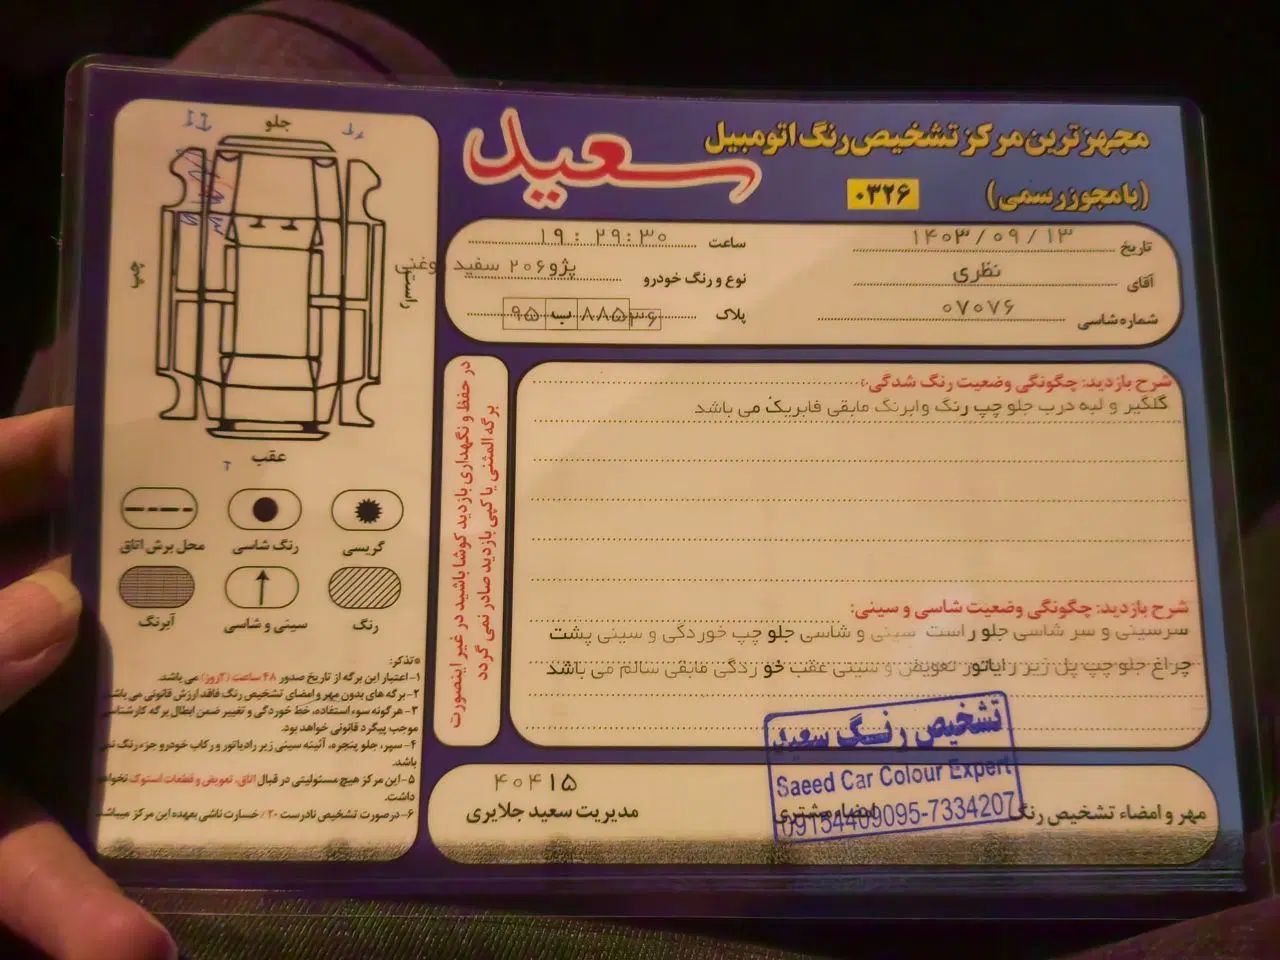 مجهزترین مرکز تشخیص رنگ اتومبیل
سعید
(با مجوز رسمی)
۰۳۲۶
تاریخ ۱۴۰۳/۰۹/۱۳
ساعت ۱۹:۲۹:۳۰
آقای نظری
نوع و رنگ خودرو پژو۲۰۶ سفید روغنی
شماره شاسی ۰۷۰۷۶
پلاک ۹۵ ب ۸۸۵۳۶
شرح بازدید: چگونگی وضعیت رنگ شدگی:
گلگیر و لبه درب جلو چپ رنگ وابرنگ مابقی فابریک می باشد
شرح بازدید: چگونگی وضعیت شاسی و سینی:
سرسینی و سر شاسی جلو راست سینی و شاسی جلو چپ خوردگی و سینی پشت
چراغ جلو چپ پل زیر رایاتور تعویض و سینی عقب خو ردگی مابقی سالم می باشد
در حفظ و نگهداری بازدید کوشا باشید در غیر اینصورت
برگه المثنی یا کپی بازدید صادر نمی گردد
جلو
راست
عقب
گریسی
رنگ شاسی
محل برش اتاق
رنگ
سینی و شاسی
آبرنگ
*تذکر:
۱- اعتبار این برگه از تاریخ صدور ۴۸ ساعت (۲روز) می باشد.
۲- برگه های بدون مهر و امضای تشخیص رنگ فاقد ارزش قانونی می باشد
۳- هرگونه سوء استفاده، خط خوردگی و تغییر ضمن ابطال برگه کارشناسی
موجب پیگرد قانونی خواهد بود.
۴- سپر، جلو پنجره، آئینه سینی زیر رادیاتور و رکاب خودرو جزء رنگ نمی
باشد.
۵- این مرکز هیچ مسئولیتی در قبال اتاق، تعویض و قطعات استوک نخواهد
داشت.
۶- در صورت تشخیص نادرست ۲۰٪ خسارت ناشی بعهده این مرکز میباشد
۴۰۴۱۵
مدیریت سعید جلایری
امضاء مشتری
مهر و امضاء تشخیص رنگ
تشخیص رنگ سعید
Saeed Car Colour Expert
09154409095-7334207